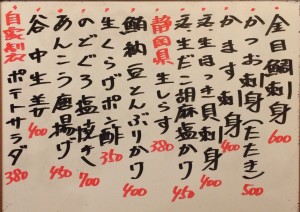 金目鯛刺身 600
かつお刺身(たたき) 500
かます刺身 400
生ほっき貝刺身 400
生だこ胡麻塩かり 450
静岡県生しらす 380
鮪納豆とんぶりかけ 400
生くらげポン酢 350
のどぐろ塩焼き 700
あんこう唐揚げ 450
谷中生姜 400
自家製ポテトサラダ 380